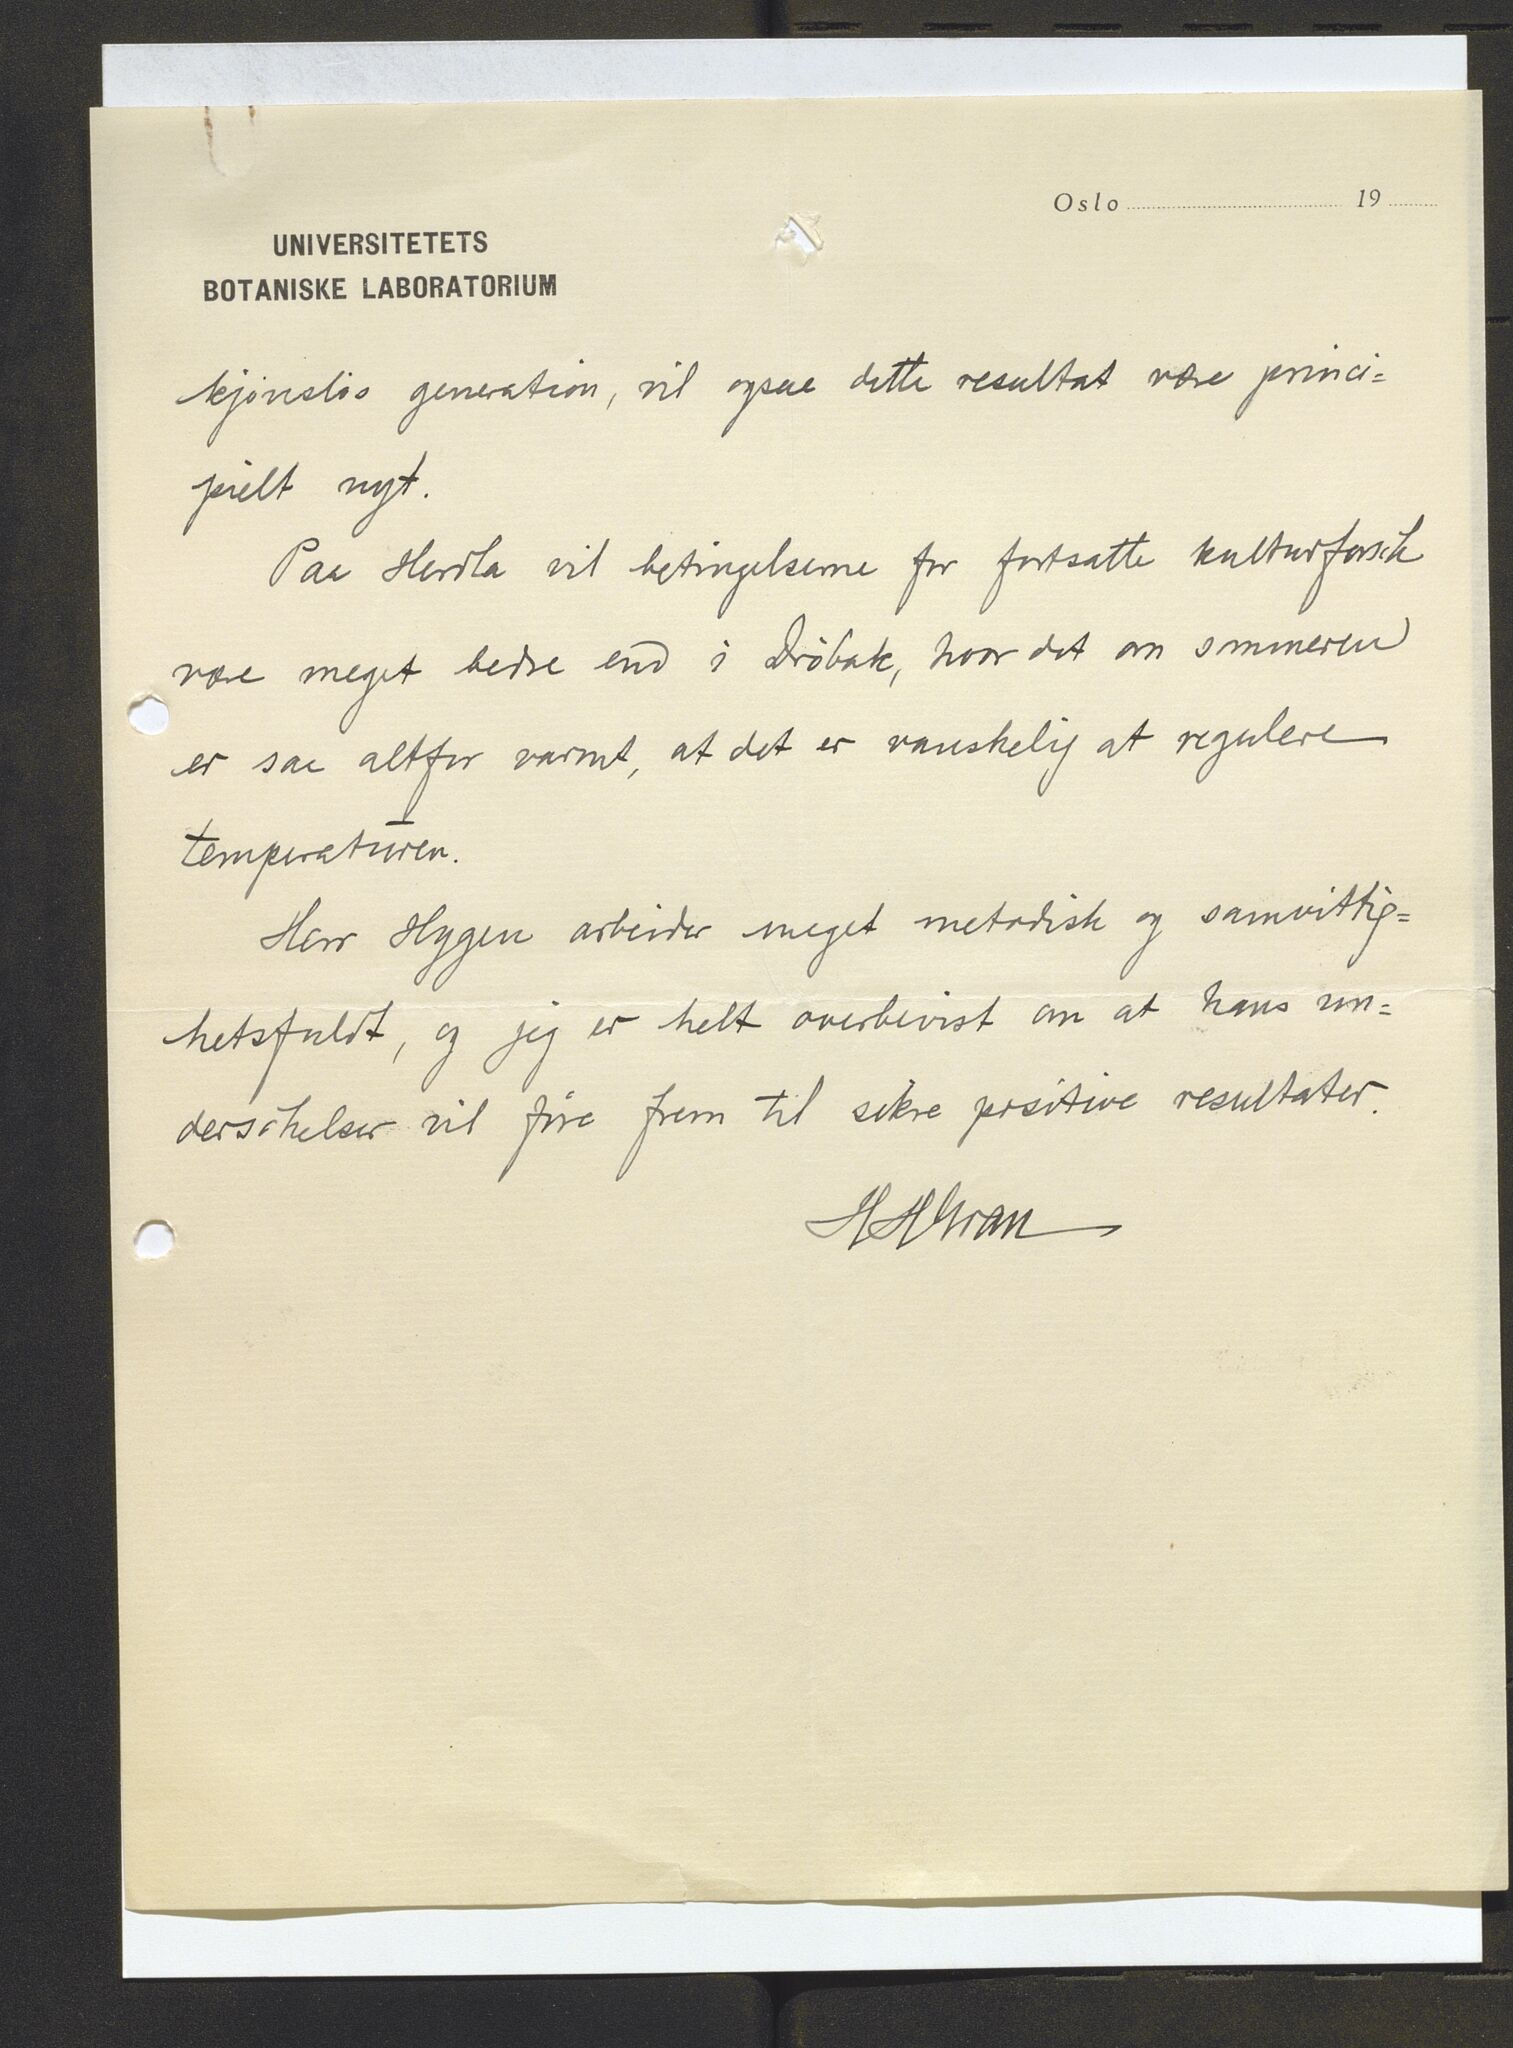 Oslo 19
UNIVERSITETETS
BOTANISKE LABORATORIUM
kjönslös generation, vil ogsaa dette resultat være princi=
pielt nyt.
Paa Herdla vil betingelserne for fortsatte kulturforsök
være meget bedre end i Dröbak, hvor det om sommeren
er saa altfor varmt, at det er vanskelig at regulere
temperaturen.
Herr Hygen arbeider meget metodisk og samvittig=
hetsfuldt, og jeg er helt overbevist om at hans un=
dersökelser vil före frem til sikre positive resultater.
HHGran